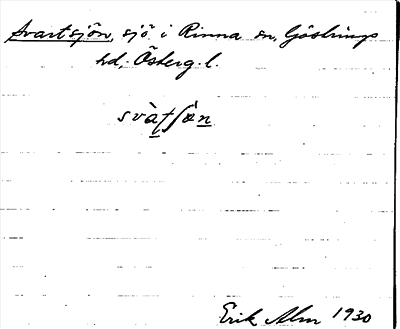 Svartsjön, sjö i Rinna sn, Göstrings
hd, Österg. l.
Erik Alm 1930